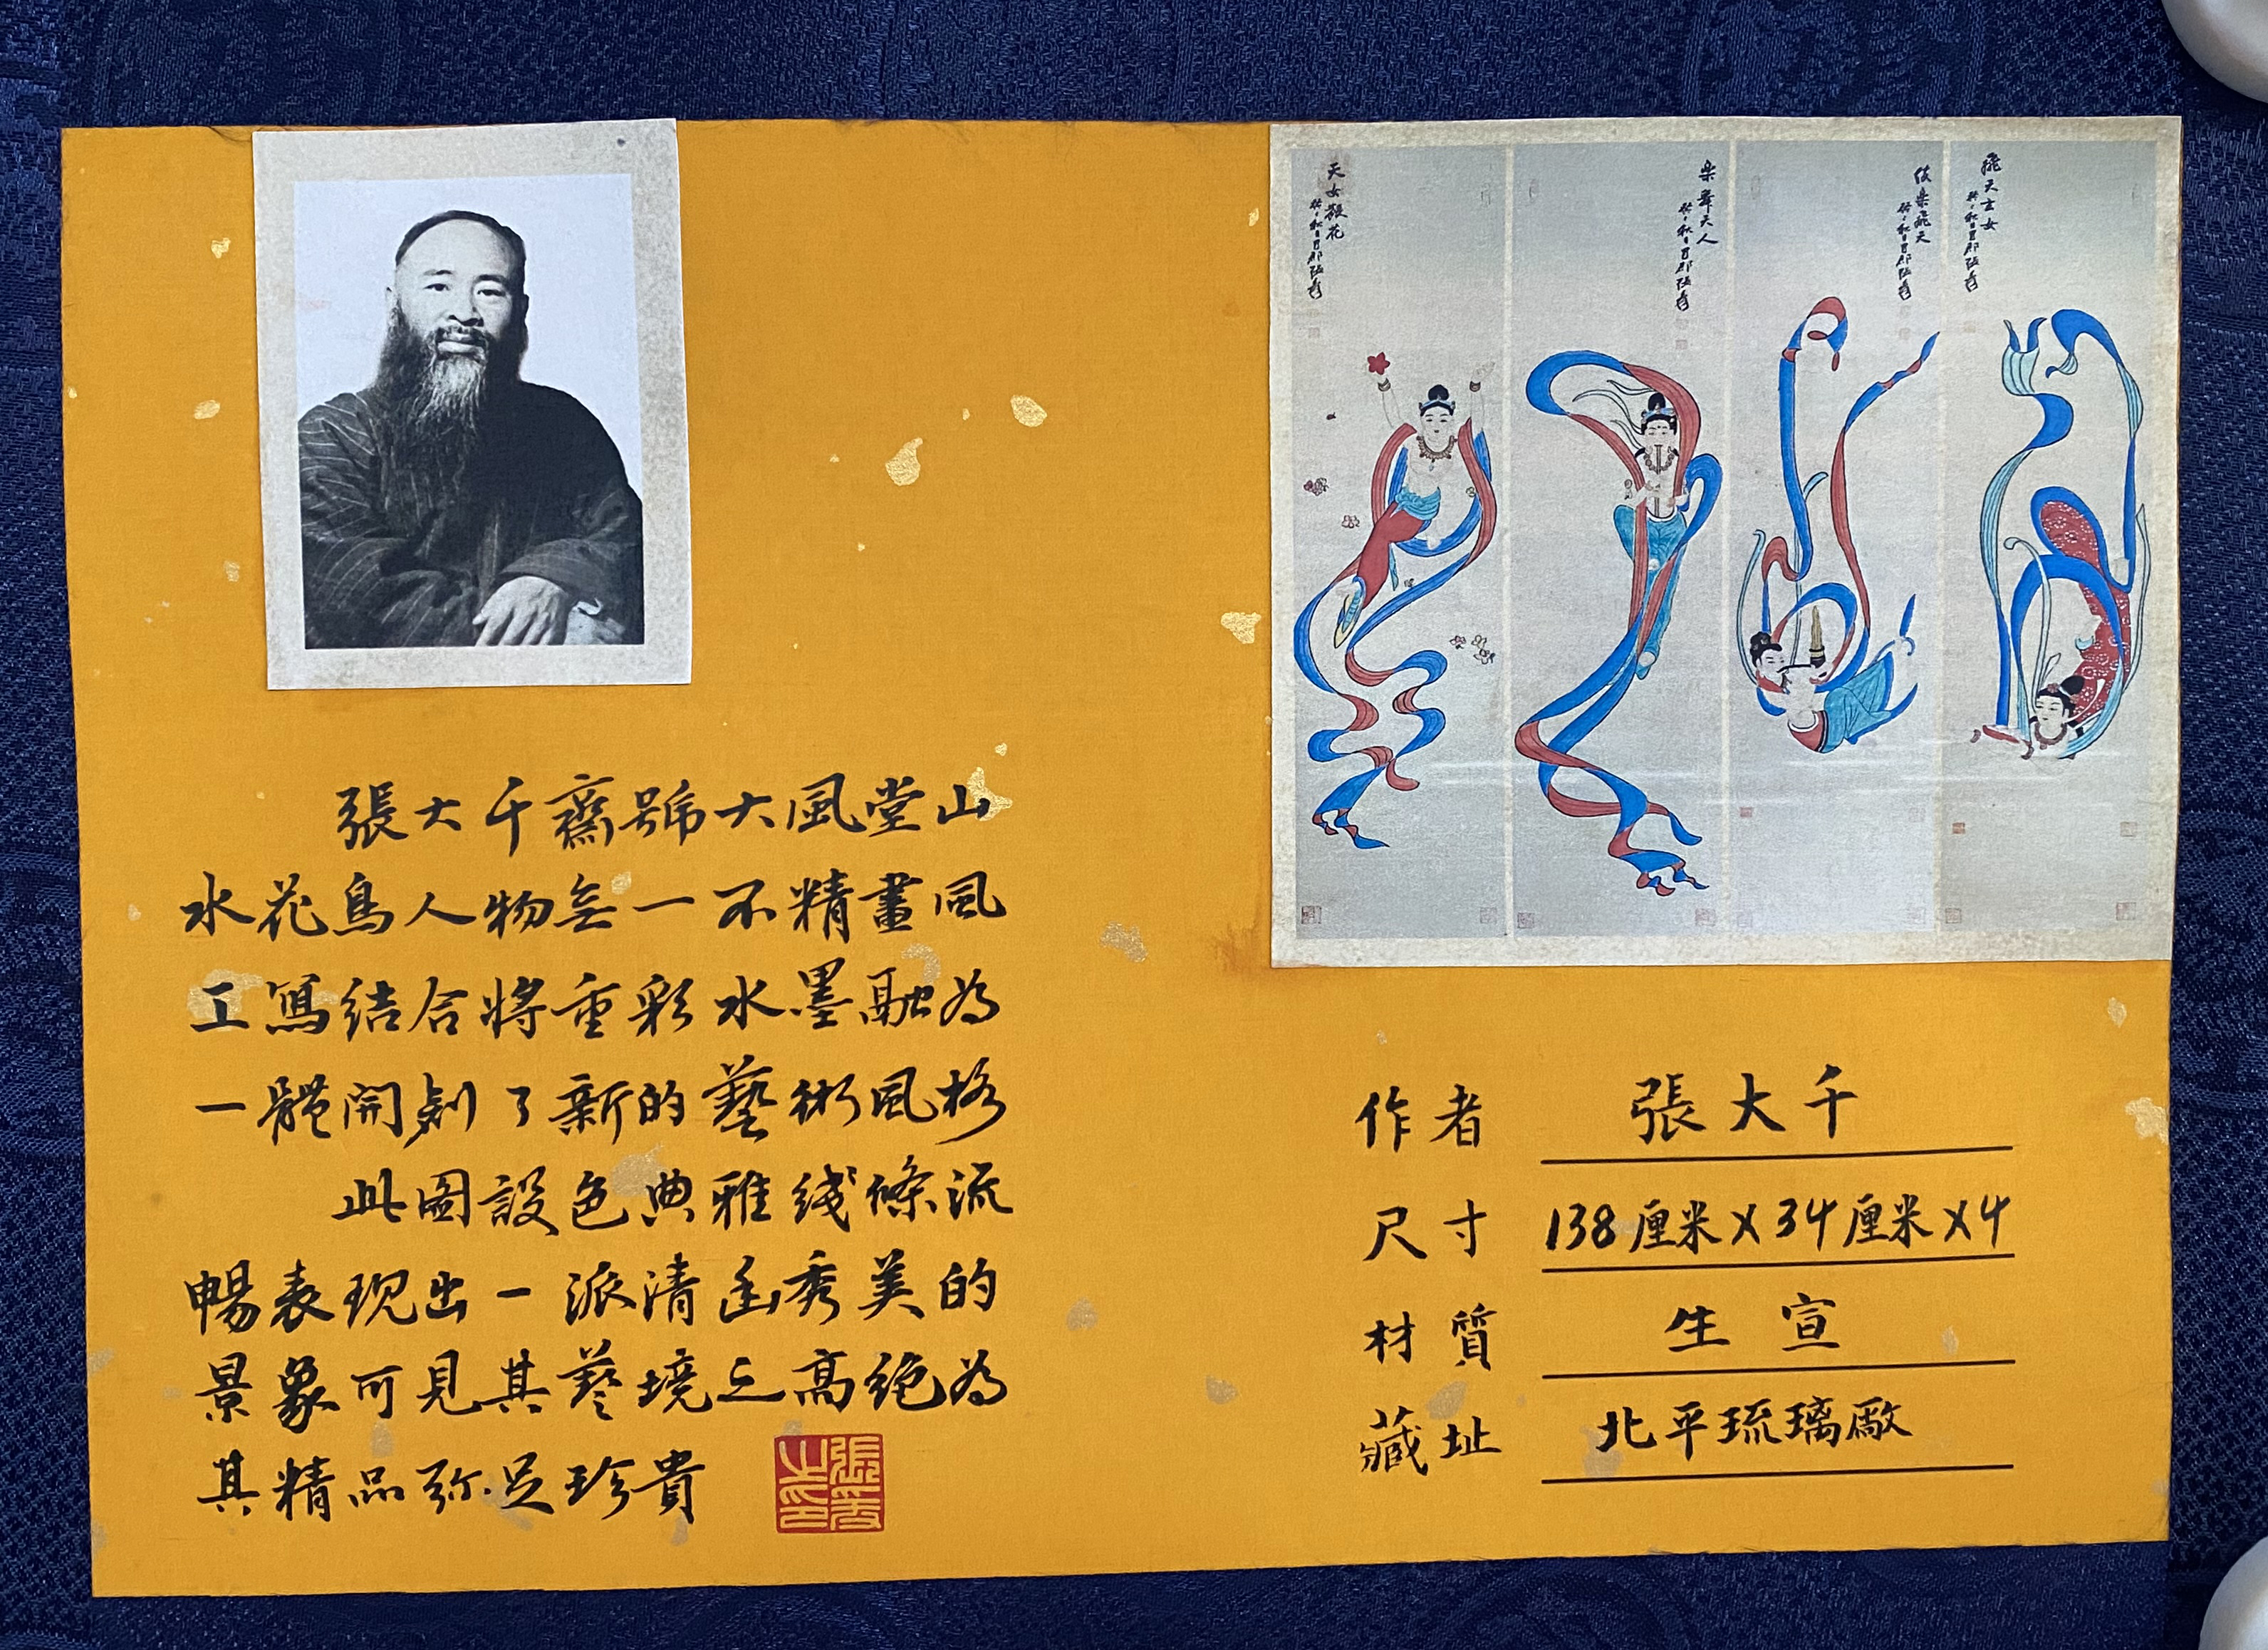 張大千齋號大風堂山
水花鳥人物無一不精畫風
工寫結合將重彩水墨融為
一體開創了新的藝術風格
此圖設色典雅綫條流
暢表现出一派清幽秀美的
景象可見其藝境之高絕為
其精品弥足珍貴
天女散花
楽舞天人
伎楽飛天
飛天玄女
作者 張大千
尺寸 138厘米X34厘米X4
材質 生宣
藏址 北平琉璃廠